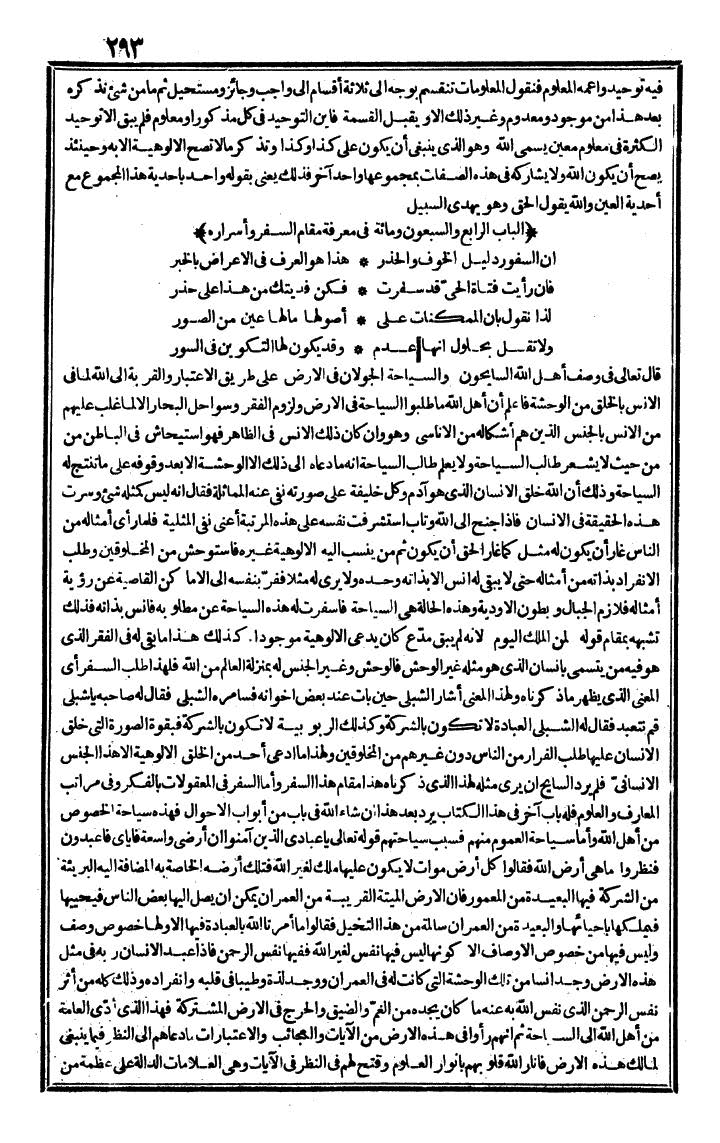 ٢٩٣
فيه توحيد واعمه المعلوم فنقول المعلومات تنقسم بوجه الى ثلاثة أقسام الى واجب وجائز ومستحيل ثم ما من شئ نذكره
بعد هذا من موجود ومعدوم وغير ذلك الا ويقبل القسمة فاين التوحيد فى كل مذكور او معلوم فلم يبق الا توحيد
الكثرة فى معلوم معين يسمى الله وهو الذى ينبغى أن يكون على كذا وكذا وتذكر ما لا تصح الالوهية الا به وحينئذ
يصح أن يكون الله ولا يشاركه فى هذه الصفات بمجموعها واحد آخر فذلك يعنى بقوله واحد باحدية هذا المجموع مع
أحدية العين والله يقول الحق وهو يهدى السبيل
﴿الباب الرابع والسبعون ومائة فى معرفة مقام السفر وأسراره﴾
ان السفور دليل الخوف والحذر * هذا هو العرف فى الاعراض بالخبر
فان رأيت فتاة الحى قد سفرت * فكن فديتك من هذا على حذر
لذا نقول بان الممكنات على * أصولها ما لها عين من الصور
ولا تقل بحلول انها عدم * وقد يكون لها التكوين فى السور
قال تعالى فى وصف أهل الله السايحون والسياحة الجولان فى الارض على طريق الاعتبار والقربة الى الله لما فى
الانس بالخلق من الوحشة فاعلم أن أهل الله ما طلبوا السياحة فى الارض ولزوم الفقر وسواحل البحار الا لما غلب عليهم
من الانس بالجنس الذين هم أشكاله من الاناسى وهو وان كان ذلك الانس فى الظاهر فهو استيحاش فى الباطن من
من حيث لا يشعر طالب السياحة ولا يعلم طالب السياحة انه ما دعاه الى ذلك الا الوحشة الا بعد وقوفه على ما تنتج له
السياحة وذلك أن الله خلق الانسان الذى هو آدم وكل خليفة على صورته نفى عنه المماثلة فقال انه ليس كمثله شئ وسرت
هذه الحقيقة فى الانسان فاذا جنح الى الله وتاب استشرفت نفسه على هذه المرتبة أعنى نفى المثلية فلما رأى أمثاله من
الناس غار أن يكون له مثل كما غار الحق أن يكون ثم من ينسب اليه الالوهية غيره فاستوحش من المخلوقين وطلب
الانفراد بذاته من أمثاله حتى لا يبقى له انس الا بذاته وحده ولا يرى له مثلا ففر بنفسه الى الاماكن القاصية عن رؤية
أمثاله فلازم الجبال وبطون الاودية وهذه الحالة هى السياحة فاسفرت له هذه السياحة عن مطلوبه فانس بذاته فذلك
تشبهه بمقام قوله لمن الملك اليوم لانه لم يبق مدّع كان يدعى الالوهية موجودا. كذلك هذا ما بقى له فى القفر الذى
هو فيه من يتسمى بانسان الذى هو مثله غير الوحش فالوحش وغير الجنس له بمنزلة العالم من الله فلهذا طلب السفر أى
المعنى الذى يظهر ما ذكرناه ولهذا المعنى أشار الشبلى حين بات عند بعض اخوانه فسامره الشبلى فقال له صاحبه يا شبلى
قم نتعبد فقال له الشبلى العبادة لا تكون بالشركة وكذلك الربوبية لا تكون بالشركة فبقوة الصورة التى خلق
الانسان عليها طلب الفرار من الناس دون غيرهم من المخلوقين ولهذا ما ادعى أحد من الخلق الالوهية الا هذا الجنس
الانسانى فلم يرد السايح ان يرى مثله لهذا الذى ذكرناه هذا مقام هذا السفر وأما السفر فى المعقولات بالفكر وفى مراتب
المعارف والعلوم فله باب آخر فى هذا الكتاب يرد بعد هذا ان شاء الله فى باب من أبواب الاحوال فهذه سياحة الخصوص
من أهل الله وأما سياحة العموم منهم فسبب سياحتهم قوله تعالى يا عبادى الذين آمنوا ان أرضى واسعة فاياى فاعبدون
فنظروا ما هى أرض الله فقالوا كل أرض موات لا يكون عليها ملك لغير الله فتلك أرضه الخاصة به المضافة اليه البريئة
من الشركة فيها البعيدة من المعمور فان الارض الميتة القريبة من العمران يمكن ان يصل اليها بعض الناس فيحييها
فيملكها باحيائها والبعيدة من العمران سالمة من هذا التخيل فقالوا ما أمرنا الله بالعبادة فيها الا ولها خصوص وصف
وليس فيها من خصوص الاوصاف الا كونها ليس فيها نفس لغير الله ففيها نفس الرحمن فاذا عبد الانسان ربه فى مثل
هذه الارض وجد انسا من تلك الوحشة التى كانت له فى العمران ووجد لذة وطيبا فى قلبه وانفراده وذلك كله من أثر
نفس الرحمن الذى نفس الله به عنه ما كان يجده من الغم والضيق والحرج فى الارض المشتركة فهذا الذى أدّى العامة
من أهل الله الى السياحة ثم انهم رأوا فى هذه الارض من الآيات والعجائب والاعتبارات ما دعاهم الى النظر فيما ينبغى
لمالك هذه الارض فانار الله قلوبهم بانوار العلوم وفتح لهم فى النظر فى الآيات وهى العلامات الدالة على عظمة من